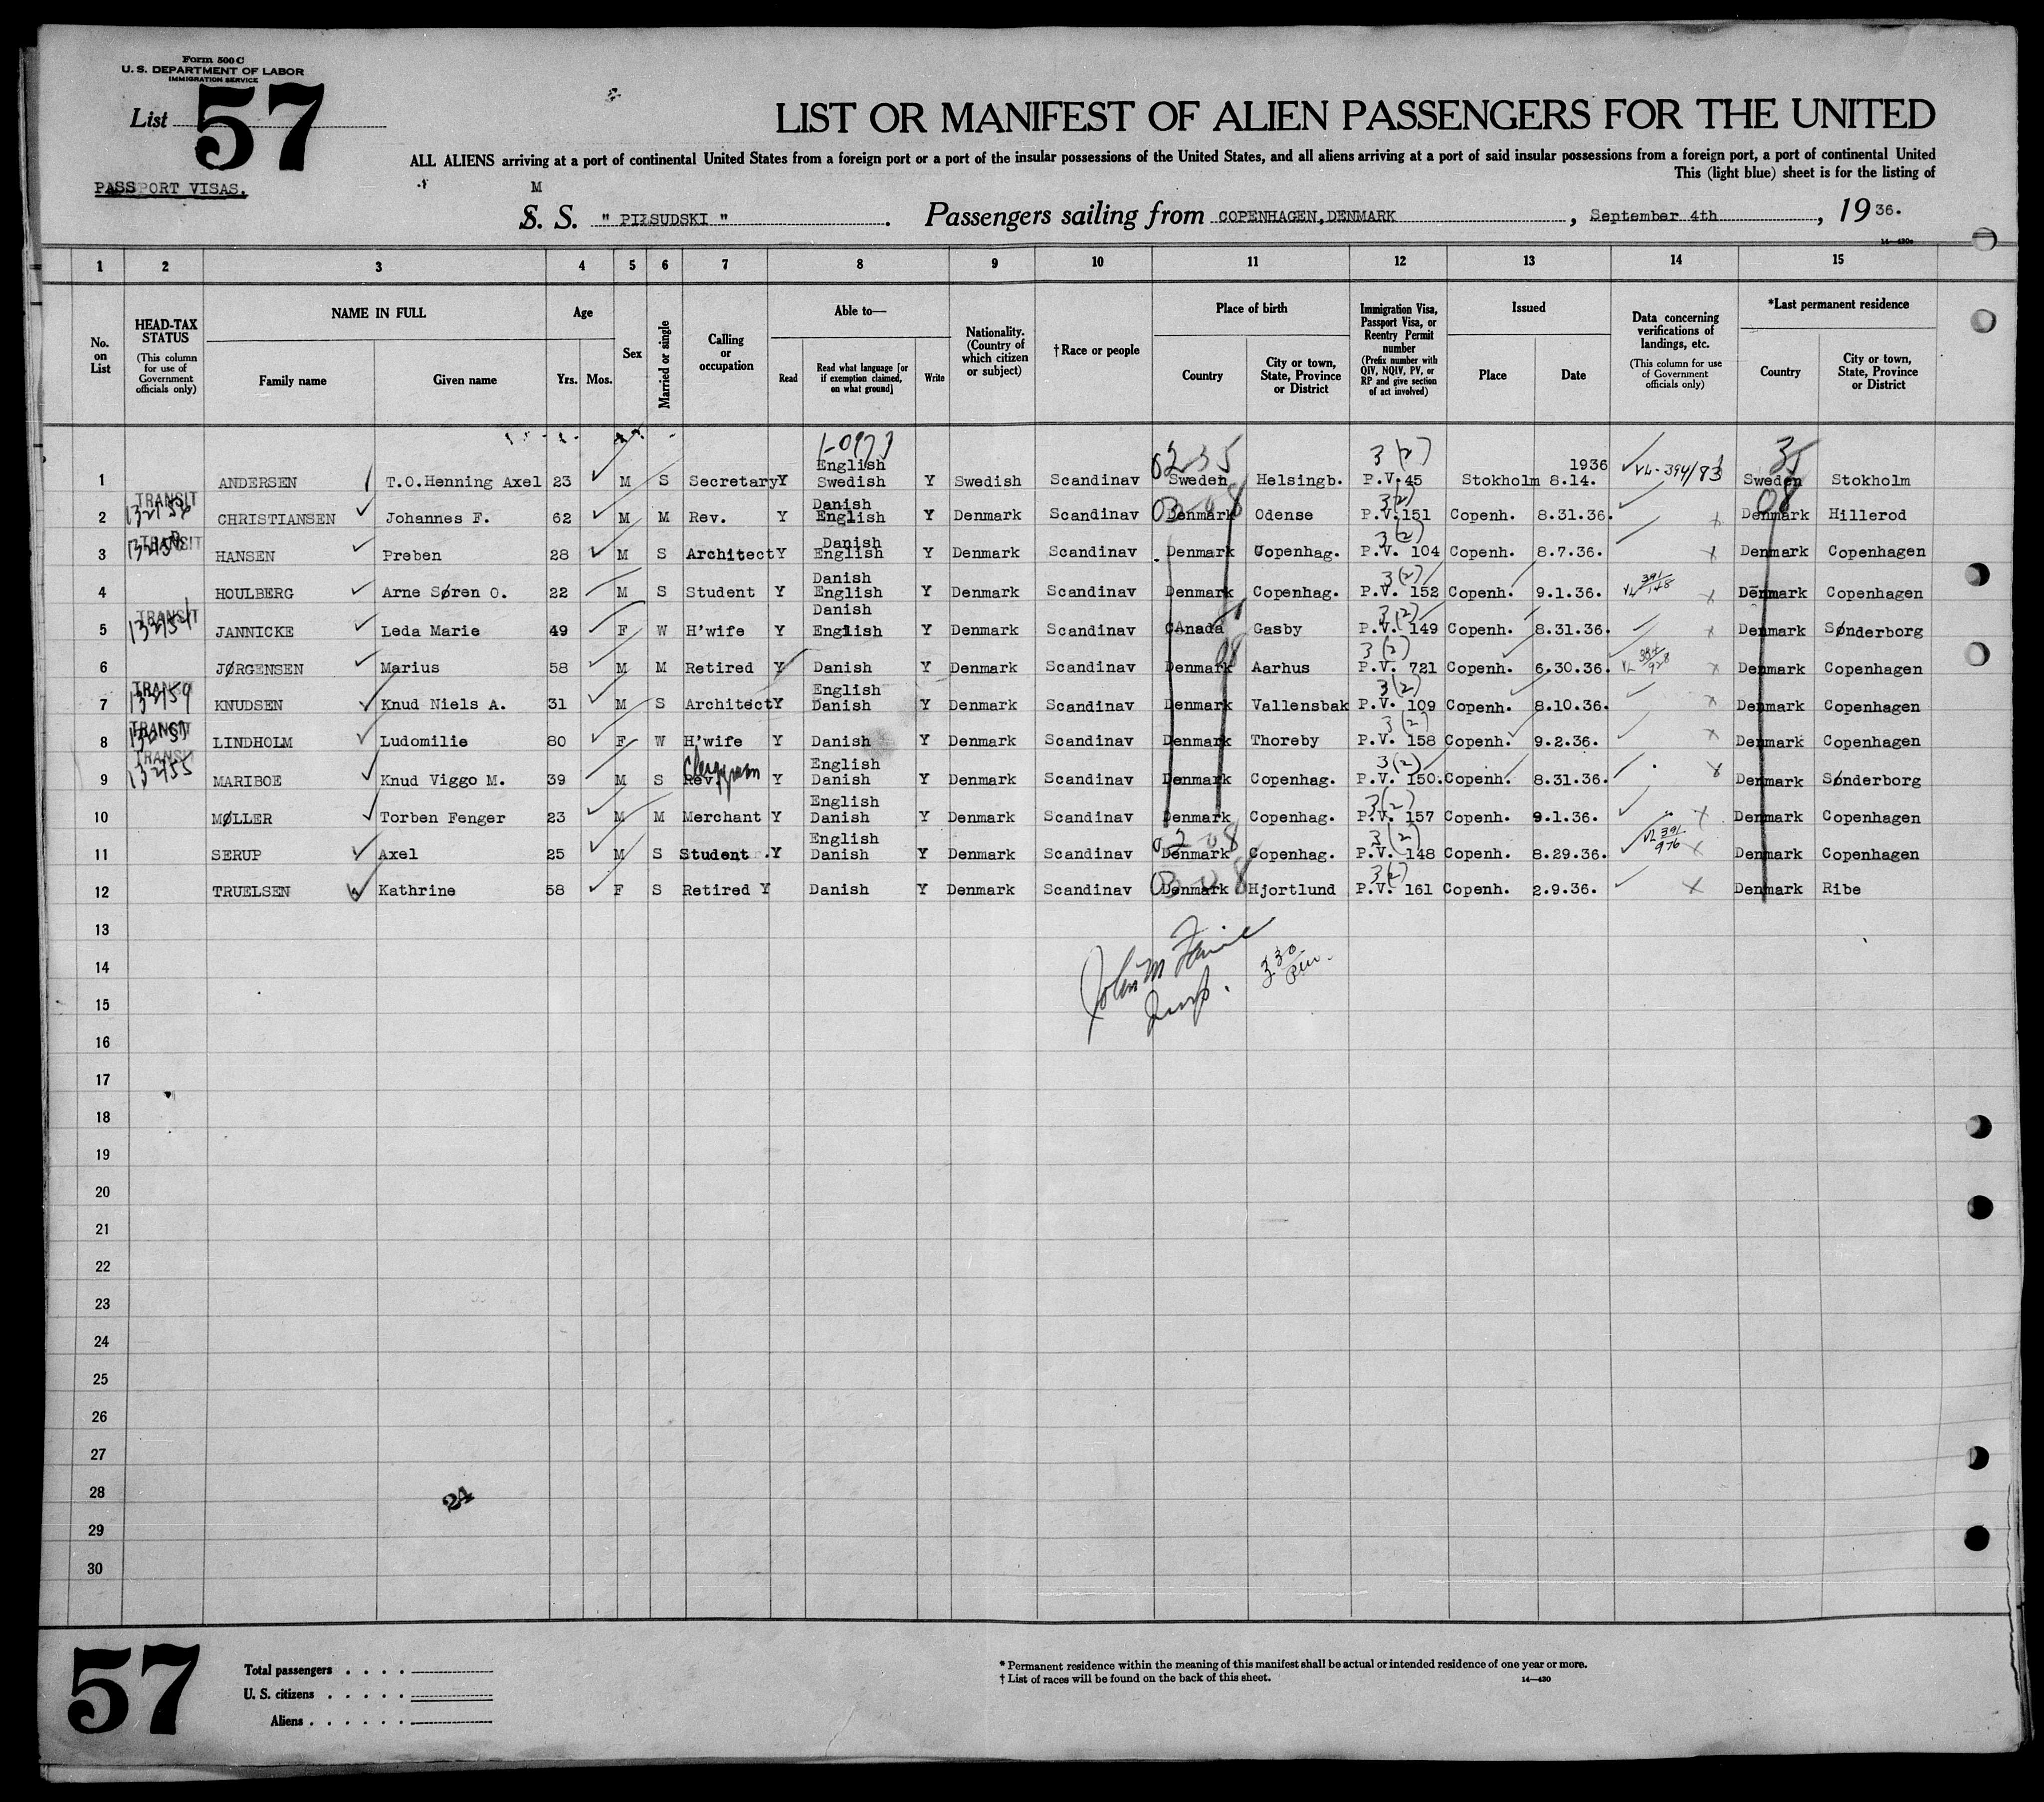 Form 500 C
U. S. DEPARTMENT OF LABOR
IMMIGRATION SERVICE
List 57
PASSPORT VISAS.
LIST OR MANIFEST OF ALIEN PASSENGERS FOR THE UNITED
ALL ALIENS arriving at a port of continental United States from a foreign port or a port of the insular possessions of the United States, and all aliens arriving at a port of said insular possessions from a foreign port, a port of continental United
This (light blue) sheet is for the listing of
M
S. S. " PIŁSUDSKI ". Passengers sailing from COPENHAGEN, DENMARK, September 4th, 1936.
14—430c
1 2 3 4 5 6 7 8 9 10 11 12 13 14 15
No. on List
HEAD-TAX STATUS (This column for use of Government officials only)
NAME IN FULL Family name Given name
Age Yrs. Mos.
Sex
Married or single
Calling or occupation
Able to— Read Read what language [or if exemption claimed, on what ground] Write
Nationality. (Country of which citizen or subject)
†Race or people
Place of birth Country City or town, State, Province or District
Immigration Visa, Passport Visa, or Reentry Permit number (Prefix number with QIV, NQIV, PV, or RP and give section of act involved)
Issued Place Date
Data concerning verifications of landings, etc. (This column for use of Government officials only)
*Last permanent residence Country City or town, State, Province or District
0235 3(2) 1936 35
1 ANDERSEN T.O.Henning Axel 23 M S Secretary Y English Swedish Y Swedish Scandinav Sweden Helsingb. P.V.45 Stokholm 8.14. VL-394/83 Sweden Stokholm
2 TRANSIT CHRISTIANSEN Johannes F. 62 M M Rev. Y Danish English Y Denmark Scandinav Denmark Odense 3(2) P.V.151 Copenh. 8.31.36. x Denmark Hillerod
3 TRANSIT HANSEN Preben 28 M S Architect Y Danish English Y Denmark Scandinav Denmark Copenhag. 3(2) P.V. 104 Copenh. 8.7.36. x Denmark Copenhagen
4 HOULBERG Arne Søren O. 22 M S Student Y Danish English Y Denmark Scandinav Denmark Copenhag. 3(2) P.V. 152 Copenh. 9.1.36. VL 391/148 x Denmark Copenhagen
5 TRANSIT JANNICKE Leda Marie 49 F W H'wife Y Danish English Y Denmark Scandinav CAnada Gasby 3(2) P.V. 149 Copenh. 8.31.36. x Denmark Sønderborg
6 JØRGENSEN Marius 58 M M Retired Y Danish Y Denmark Scandinav Denmark Aarhus 3(2) P.V. 721 Copenh. 6.30.36. x Denmark Copenhagen
7 TRANSIT 132159 KNUDSEN Knud Niels A. 31 M S Architect Y English Danish Y Denmark Scandinav Denmark Vallensbak 3(2) P.V. 109 Copenh. 8.10.36. x Denmark Copenhagen
8 TRANSIT LINDHOLM Ludomilie 80 F W H'wife Y Danish Y Denmark Scandinav Denmark Thoreby 3(2) P.V. 158 Copenh. 9.2.36. x Denmark Copenhagen
9 TRANSIT 132155 MARIBOE Knud Viggo M. 39 M S Rev. Clergyman Y English Danish Y Denmark Scandinav Denmark Copenhag. 3(2) P.V. 150. Copenh. 8.31.36. x Denmark Sønderborg
10 MØLLER Torben Fenger 23 M M Merchant Y English Danish Y Denmark Scandinav Denmark Copenhag. 3(2) P.V. 157 Copenh. 9.1.36. x Denmark Copenhagen
11 SERUP Axel 25 M S Student Y English Danish Y Denmark Scandinav Denmark Copenhag. 3(2) P.V. 148 Copenh. 8.29.36. VL 391/976 x Denmark Copenhagen
12 TRUELSEN Kathrine 58 F S Retired Y Danish Y Denmark Scandinav Denmark Hjortlund 3(2) P.V. 161 Copenh. 2.9.36. x Denmark Ribe
13
14
15
16
17
18
19
20
21
22
23
24
25
26
27
28
24
29
30
57
Total passengers
U. S. citizens
Aliens
* Permanent residence within the meaning of this manifest shall be actual or intended residence of one year or more.
† List of races will be found on the back of this sheet.
14—430